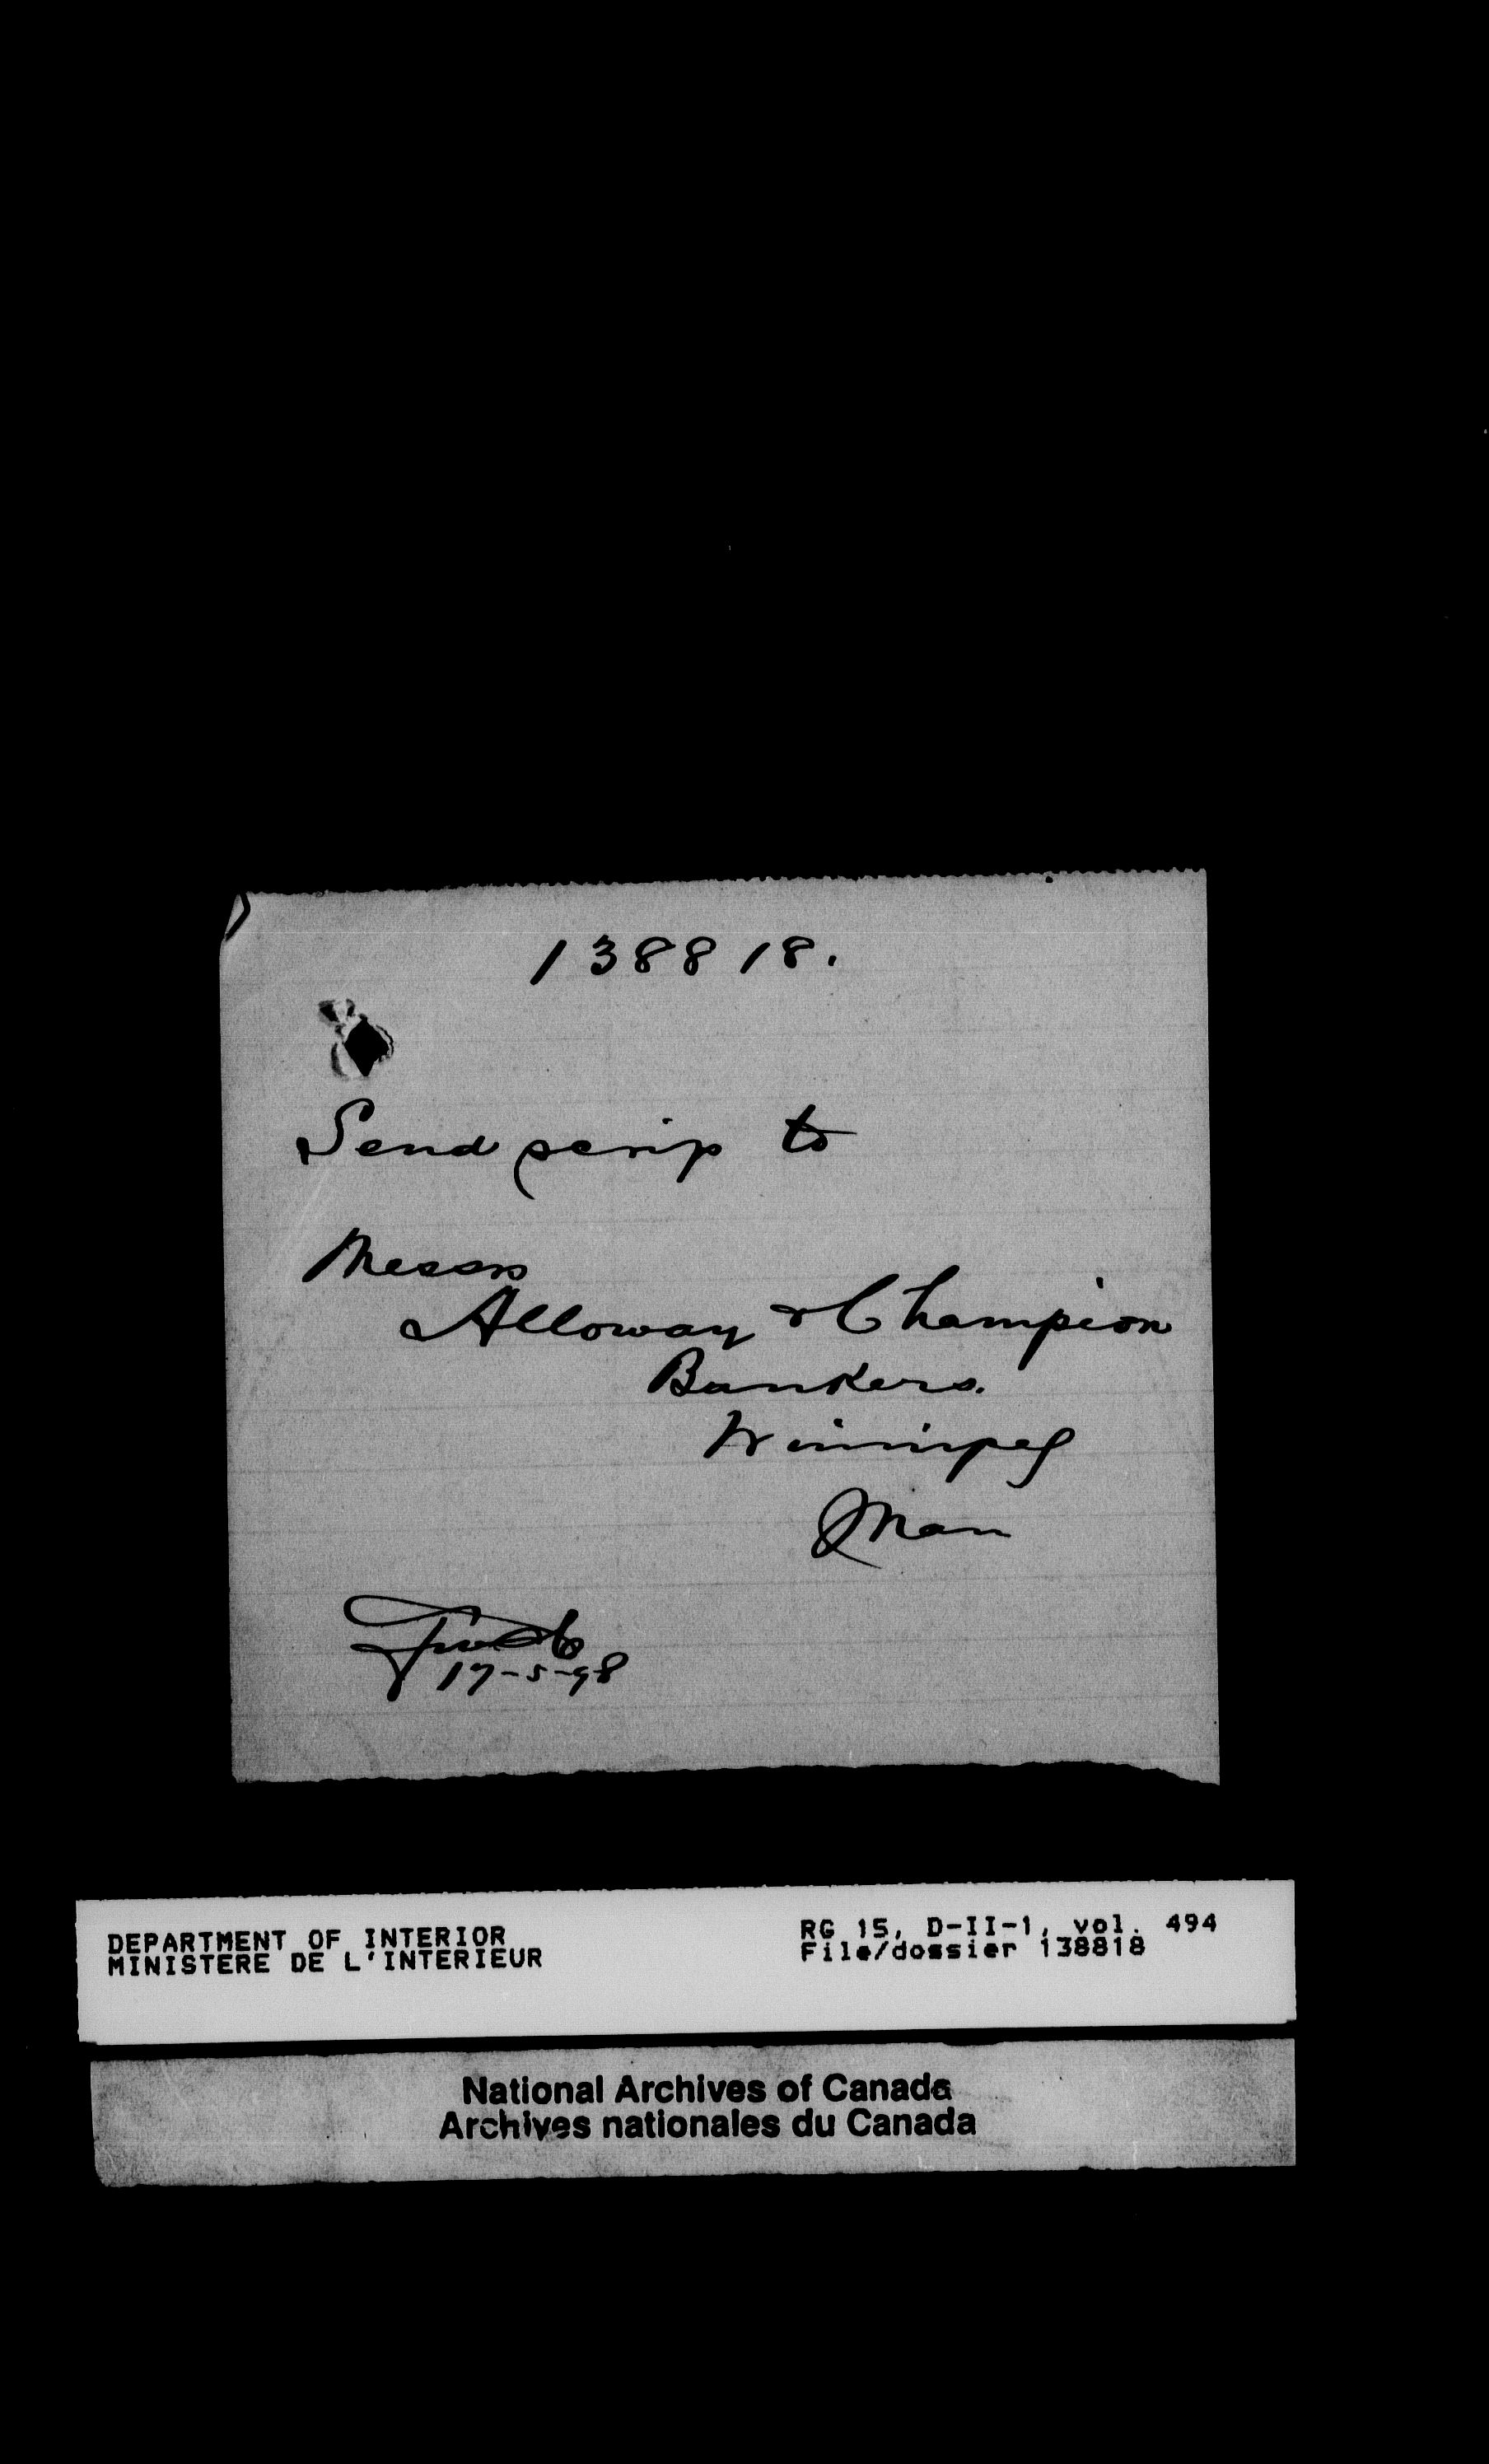 138818.
Send scrip to
Messrs
Alloway & Champion
Bankers.
Winnipeg
Man
17-5-98
DEPARTMENT OF INTERIOR
MINISTERE DE L'INTERIEUR
RG 15, D-II-1, vol. 494
File/dossier 138818
National Archives of Canada
Archives nationales du Canada